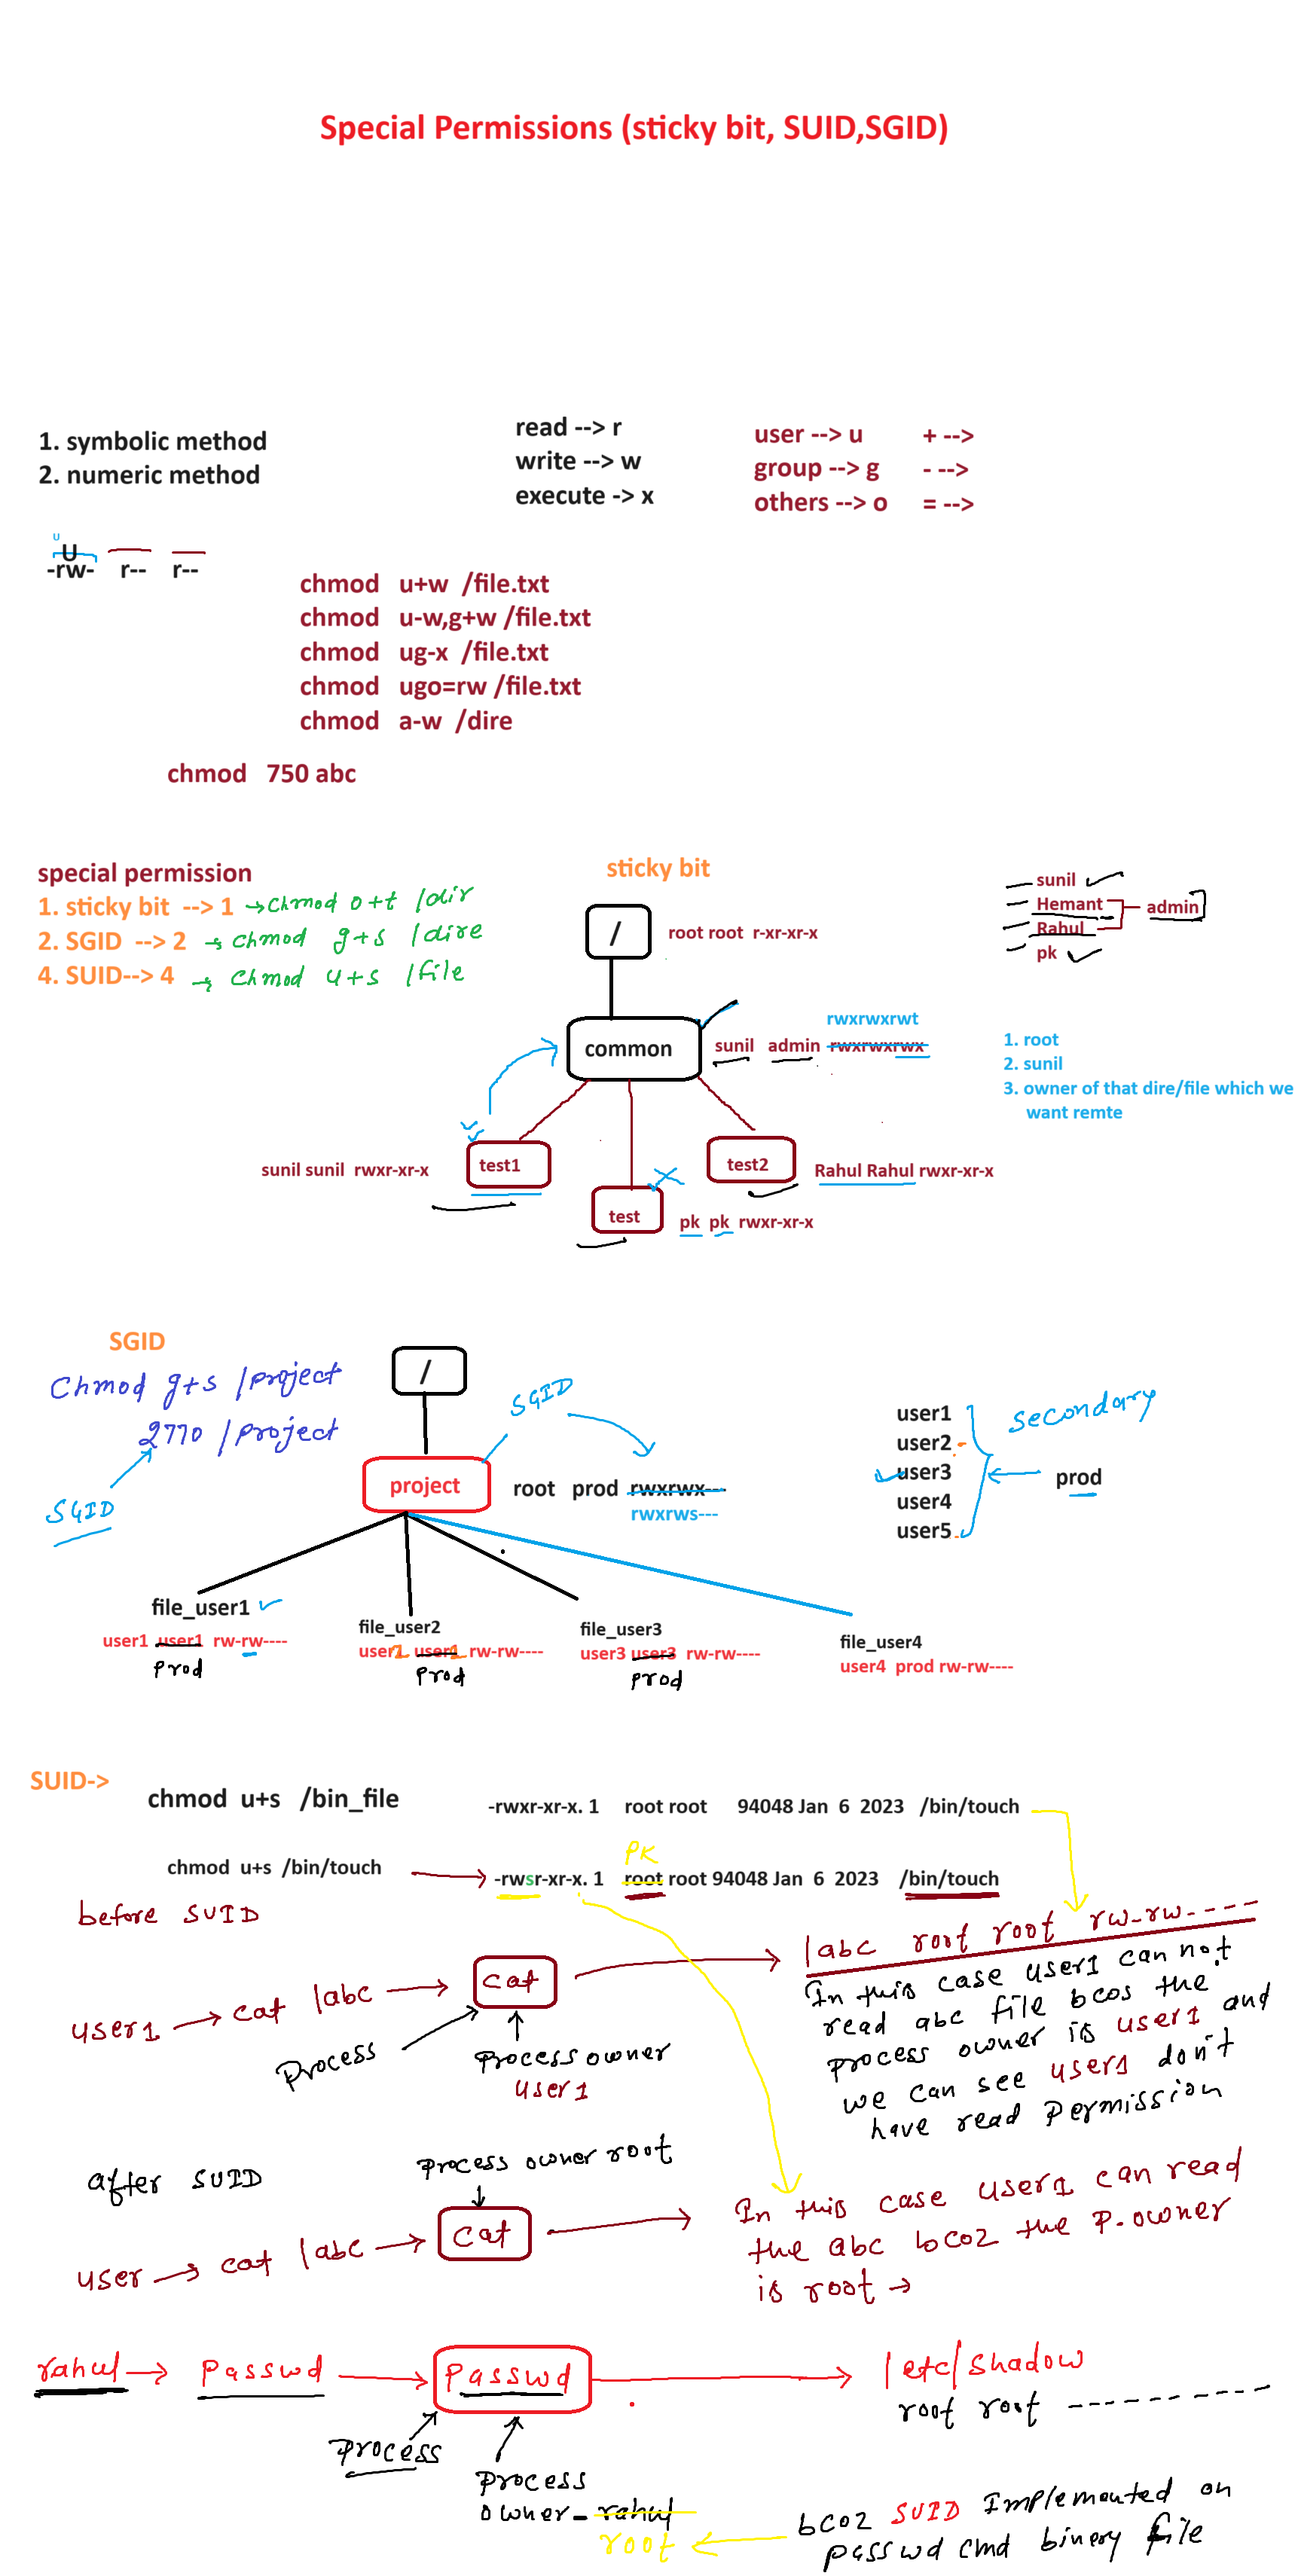 Special Permissions (sticky bit, SUID,SGID)
1. symbolic method
2. numeric method
read --> r
write --> w
execute -> x
user --> u + -->
group --> g - -->
others --> o = -->
U
U
-rw- r-- r--
chmod u+w /file.txt
chmod u-w,g+w /file.txt
chmod ug-x /file.txt
chmod ugo=rw /file.txt
chmod a-w /dire
chmod 750 abc
special permission
1. sticky bit --> 1 → chmod o+t /dir
2. SGID --> 2 → chmod g+s /dire
4. SUID--> 4 → chmod u+s /file
sticky bit
/
root root r-xr-xr-x
sunil
Hemant
Rahul
pk
admin
rwxrwxrwt
common
sunil admin rwxrwxrwx
1. root
2. sunil
3. owner of that dire/file which we
want remte
sunil sunil rwxr-xr-x
test1
test2
Rahul Rahul rwxr-xr-x
test
pk pk rwxr-xr-x
SGID
Chmod g+s /project
2770 /project
SGID
/
SGID
project
root prod rwxrwx---
rwxrws---
user1
user2
user3
user4
user5
secondary
prod
file_user1
user1 user1 rw-rw----
prod
file_user2
user2 user2 rw-rw----
prod
file_user3
user3 user3 rw-rw----
prod
file_user4
user4 prod rw-rw----
SUID->
chmod u+s /bin_file
-rwxr-xr-x. 1 root root 94048 Jan 6 2023 /bin/touch
PK
chmod u+s /bin/touch
-rwsr-xr-x. 1 root root 94048 Jan 6 2023 /bin/touch
before SUID
user1 → cat /abc → cat
Process
Process owner
user1
/abc root root rw-rw----
In this case user1 can not
read abc file bcos the
process owner is user1 and
we can see user1 don't
have read Permission
after SUID
Process owner root
user → cat /abc → cat
In this case user1 can read
the abc bcoz the P.owner
is root →
rahul → Passwd → Passwd → /etc/shadow
root root ----------
Process
Process
owner - rahul
root
bcoz SUID Implemented on
passwd cmd binery file